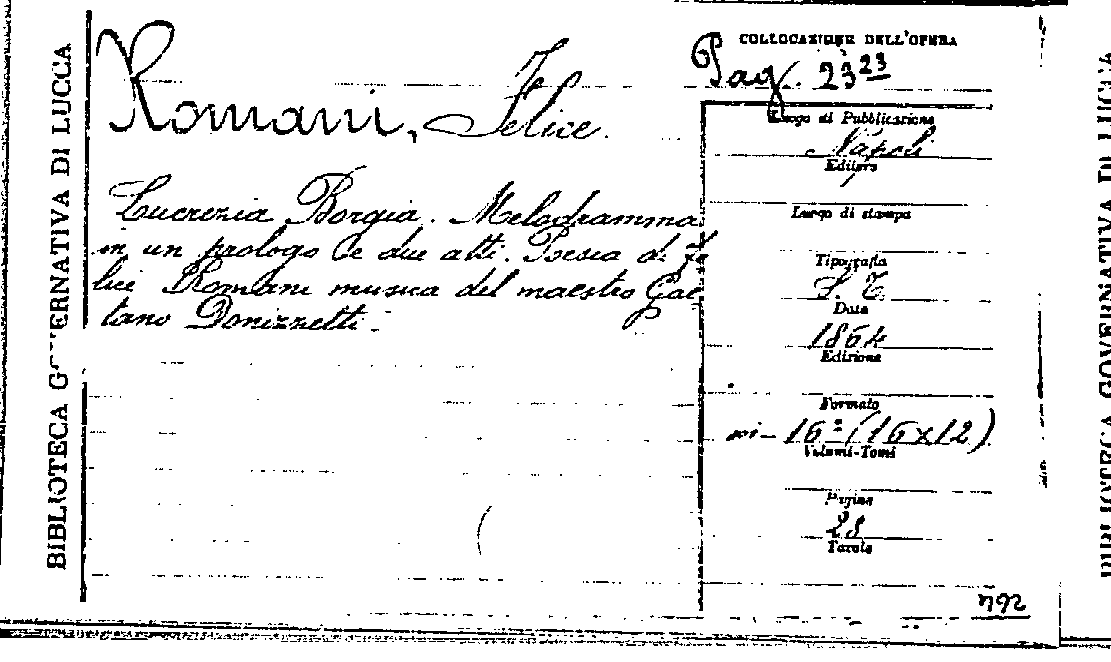 BIBLIOTECA GOVERNATIVA DI LUCCA
Romani, Felice.
Lucrezia Borgia. Melodramma
in un prologo e due atti. Poesia di Fe
lice Romani musica del maestro Gae
tano Donizzetti.
COLLOCAZIONE DELL'OPERA
Pag. 23 23
Luogo di Pubblicazione
Napoli
Editore
Luogo di stampa
Tipografia
S. T.
Data
1864
Edizione
Formato
in-16º (16x12)
Volumi-Tomi
Pagine
28
Tavole
792